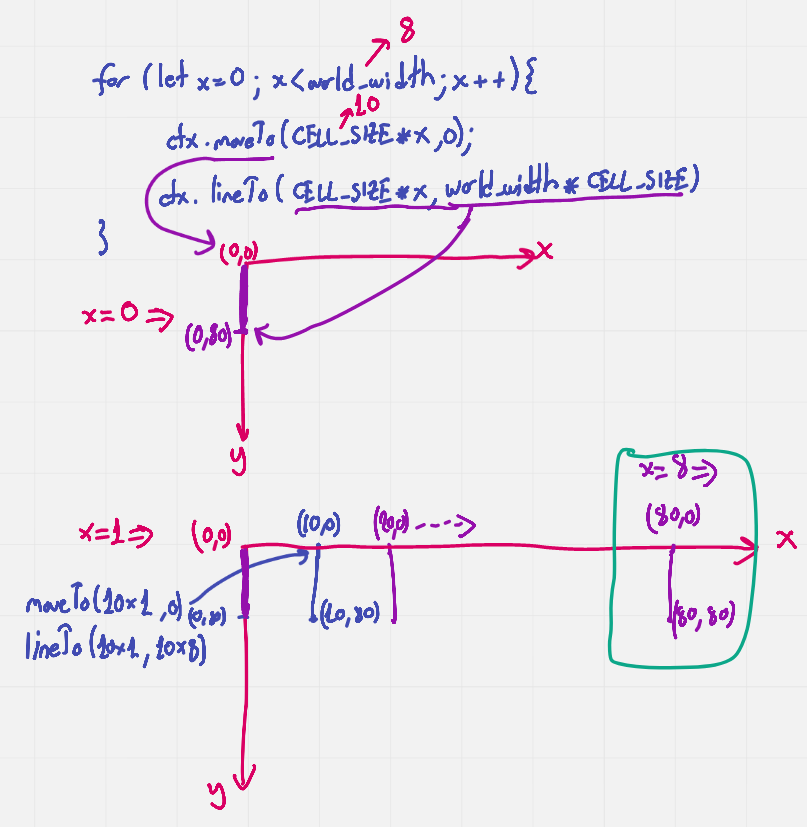 8
for (let x=0; x<world_width; x++){
10
ctx.moveTo(CELL_SIZE*x,0);
ctx.lineTo(CELL_SIZE*x, world_width*CELL_SIZE)
}
(0,0)
x
x=0 =>
(0,80)
y
x=8 =>
(80,0)
x=1 =>
(0,0)
(10,0)
(20,0)
x
moveTo(10x1,0)
(0,80)
(10,80)
(80,80)
lineTo(10x1,10x8)
y